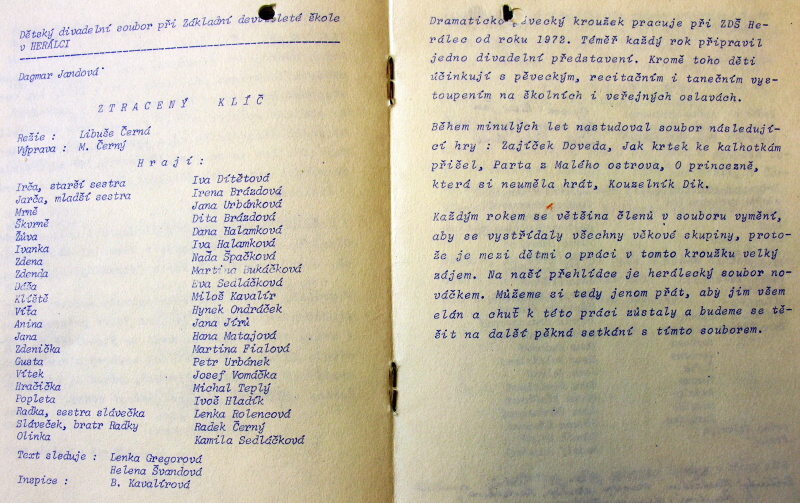 Dětský divadelní soubor při Základní devítileté škole
v HERÁLCI
Dagmar Jandová
ZTRACENÝ KLÍČ
Režie : Libuše Černá
Výprava : M. Černý
Hrají:
Irča, starší sestra Iva Dítětová
Jarča, mladší sestra Irena Brázdová
Mrně Jana Urbánková
Škvrně Dita Brázdová
Žůva Dana Halamková
Ivanka Iva Halamková
Zdena Naďa Špačková
Zdenda Martina Bukáčková
Dáša Eva Sedláčková
Klíště Miloš Kavalír
Víťa Hynek Ondráček
Anina Jana Jírů
Jana Hana Matajová
Zdenička Martina Fialová
Gusta Petr Urbánek
Vítek Josef Vomáčka
Hračička Michal Teplý
Popleta Ivoš Hladík
Radka, sestra slávečka Lenka Rolencová
Sláveček, bratr Radky Radek Černý
Olinka Kamila Sedláčková
Text sleduje : Lenka Gregorová
Helena Švandová
Inspice : B. Kavalírová
Dramaticko pěvecký kroužek pracuje při ZDŠ He-
rálec od roku 1972. Téměř každý rok připravil
jedno divadelní představení. Kromě toho děti
účinkují s pěveckým, recitačním i tanečním vys-
toupením na školních i veřejných oslavách.
Během minulých let nastudoval soubor následují-
cí hry : Zajíček Doveda, Jak krtek ke kalhotkám
přišel, Parta z Malého ostrova, O princezně,
která si neuměla hrát, Kouzelník Dik.
Každým rokem se většina členů v souboru vymění,
aby se vystřídaly všechny věkové skupiny, proto-
že je mezi dětmi o práci v tomto kroužku velký
zájem. Na naší přehlídce je herálecký soubor no-
váčkem. Můžeme si tedy jenom přát, aby jim všem
elán a chuť k této práci zůstaly a budeme se tě-
šit na další pěkná setkání s tímto souborem.